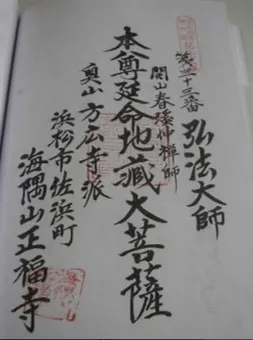 第三十三番
弘法大師
開山春澤州禅師
本尊延命地藏大菩薩
奥山方広寺派
浜松市佐浜町
海隅山正福寺